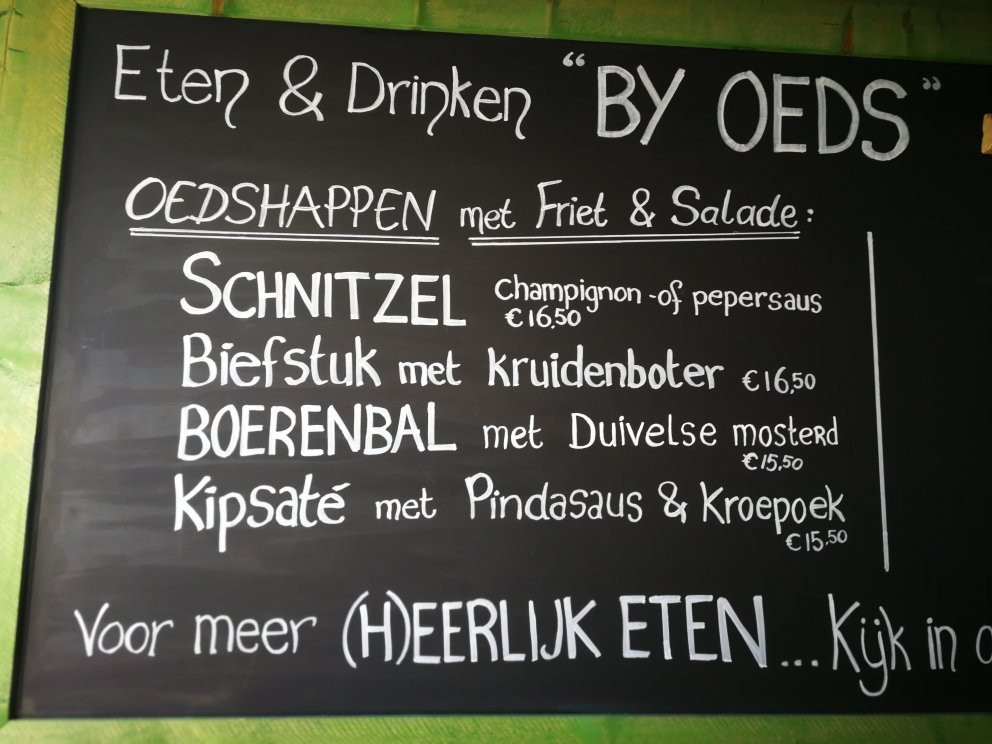 Eten & Drinken "BY OEDS"
OEDSHAPPEN met Friet & Salade:
SCHNITZEL Champignon -of pepersaus
€16,50
Biefstuk met kruidenboter €16,50
BOERENBAL met Duivelse mosterd
€15,50
Kipsaté met Pindasaus & Kroepoek
€15,50
Voor meer (H)EERLIJK ETEN... Kijk in